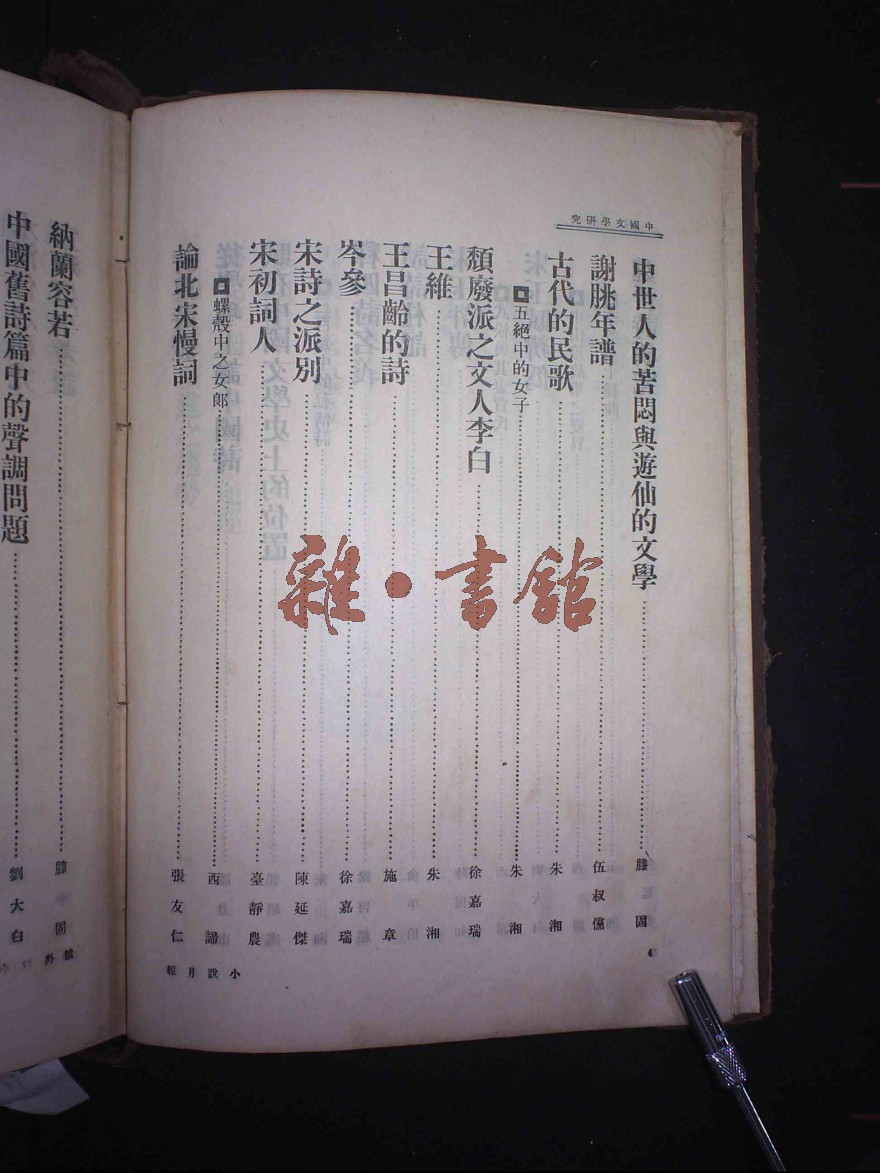 中國文學研究
中世人的苦悶與遊仙的文學 滕固
謝朓年譜 伍叔儻
古代的民歌 朱湘
五絕中的女子 朱湘
頹廢派之文人李白 徐嘉瑞
王維 朱湘
王昌齡的詩 施章
岑參 徐嘉瑞
宋詩之派別 陳延傑
宋初詞人 臺靜農
螺殼中之女郎 西諦
論北宋慢詞 張友仁
小說月報
納蘭容若 滕固
號外
中國舊詩篇中的聲調問題 劉大白
雜·書館